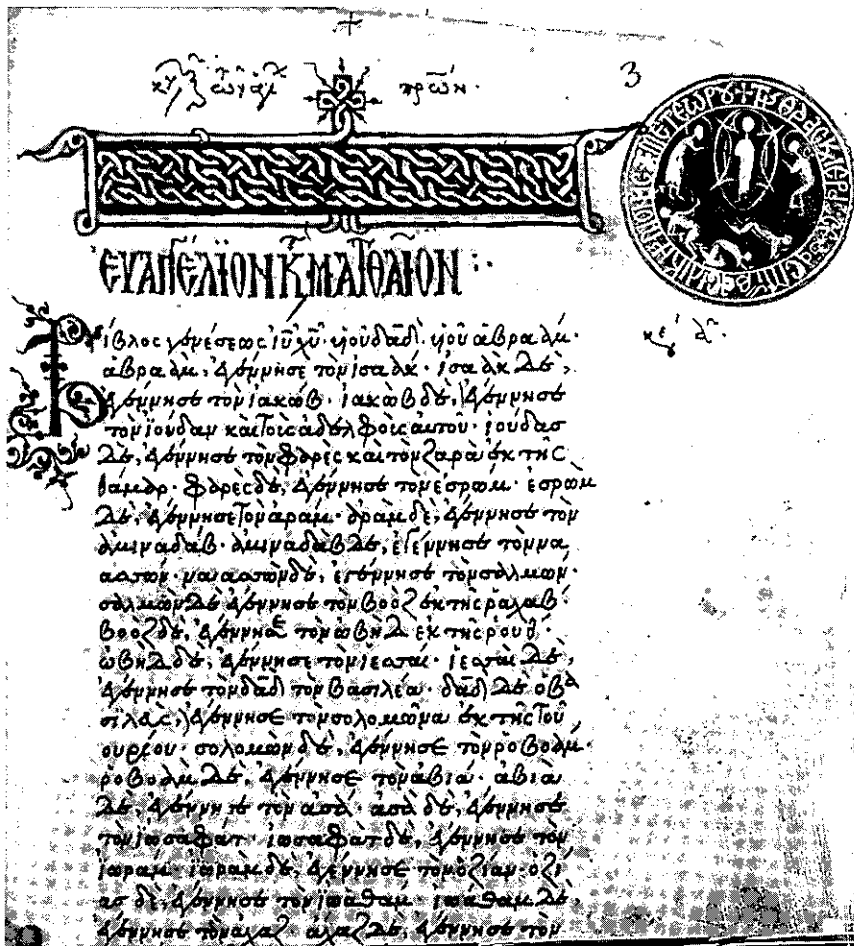 πρω̅ν·
3
ΜΕΤΕΩΡȢ
ΕΥΑΓΓΕΛΙΟΝ Κ ΜΑΤΘΑΙΟΝ
κε α
Βίβλος γενέσεως ιυ̅ χυ̅· υἱοῦ δα̅δ̅· υἱοῦ ἀβραάμ·
ἀβραὰμ, ἐγέννησε τὸν ἰσαάκ· ἰσαὰκ δὲ,
ἐγέννησε τὸν ἰακώβ· ἰακὼβ δὲ, ἐγέννησε
τὸν ἰούδαν καὶ τοὺς ἀδελφοὺς αὐτοῦ· ἰούδας
δὲ, ἐγέννησε τὸν φαρὲς καὶ τὸν ζαρὰ ἐκ τῆς
θάμαρ· φαρὲς δὲ, ἐγέννησε τὸν ἐσρώμ· ἐσρὼμ
δὲ, ἐγέννησε τὸν ἀράμ· ἀρὰμ δὲ, ἐγέννησε τὸν
ἀμιναδάβ· ἀμιναδὰβ δὲ, ἐγέννησε τὸν να
ασσών· ναασσὼν δὲ, ἐγέννησε τὸν σαλμών·
σαλμὼν δὲ ἐγέννησε τὸν βοὸζ ἐκ τῆς ῥαχάβ·
βοὸζ δὲ, ἐγέννησε τὸν ὠβὴδ ἐκ τῆς ῥούθ·
ὠβὴδ δὲ, ἐγέννησε τὸν ἰεσσαί· ἰεσσαὶ δὲ,
ἐγέννησε τὸν δα̅δ̅ τὸν βασιλέα· δα̅δ̅ δὲ ὁ βα
σιλεὺς, ἐγέννησε τὸν σολομῶνα ἐκ τῆς τοῦ
ουρίου· σολομὼν δὲ, ἐγέννησε τὸν ῥοβοάμ·
ῥοβοὰμ δὲ, ἐγέννησε τὸν ἀβιά· ἀβιὰ
δὲ, ἐγέννησε τὸν ἀσά· ἀσὰ δὲ, ἐγέννησε
τὸν ἰωσαφάτ· ἰωσαφὰτ δὲ, ἐγέννησε τὸν
ἰωράμ· ἰωρὰμ δὲ, ἐγέννησε τὸν ὀζίαν· ὀζί
ας δὲ, ἐγέννησε τὸν ἰωάθαμ· ἰωάθαμ δὲ,
ἐγέννησε τὸν ἄχαζ· ἄχαζ δὲ, ἐγέννησε τὸν